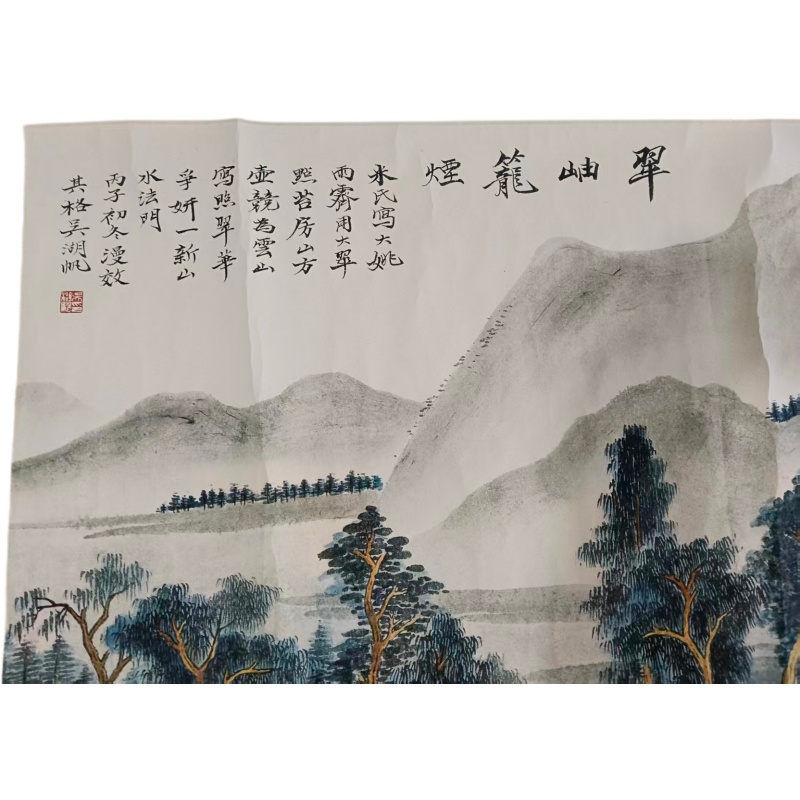 翠岫籠煙
米氏寫大姚
雨霽用大翠
點苔房山方
壺競為雲山
寫照翠華
爭妍一新山
水法門
丙子初冬漫效
其格吳湖帆